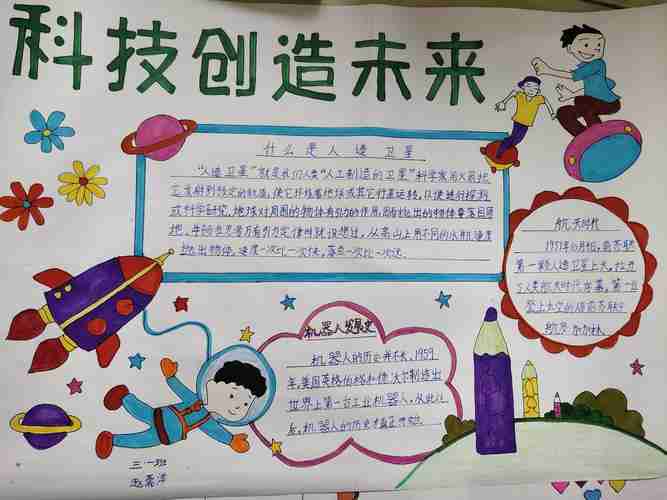 科技创造未来
什么是人造卫星
"人造卫星"就是我们人类"人工制造的卫星"科学家用火箭把
它发射到预定的轨道，使它环绕着地球或其它行星运转，以便进行探测
或科学研究，地球对周围的物体有引力的作用，因而抛出的物体要落回地
地，牛顿在思考万有引力定律时就设想过，从高山上用不同的水平速度
抛出物体，速度一次比一次快，落点一次比一次远
航天时代
1957年10月4日，前苏联
第一颗人造卫星上天，拉开
了人类航天时代序幕，第一位
登上太空的是前苏联宇
航员加加林
机器人发展史
机器人的历史并不长，1959
年，美国英格伯格和德沃尔制造出
世界上第一台工业机器人，从此以
后，机器人的历史才真正开始
三·一班